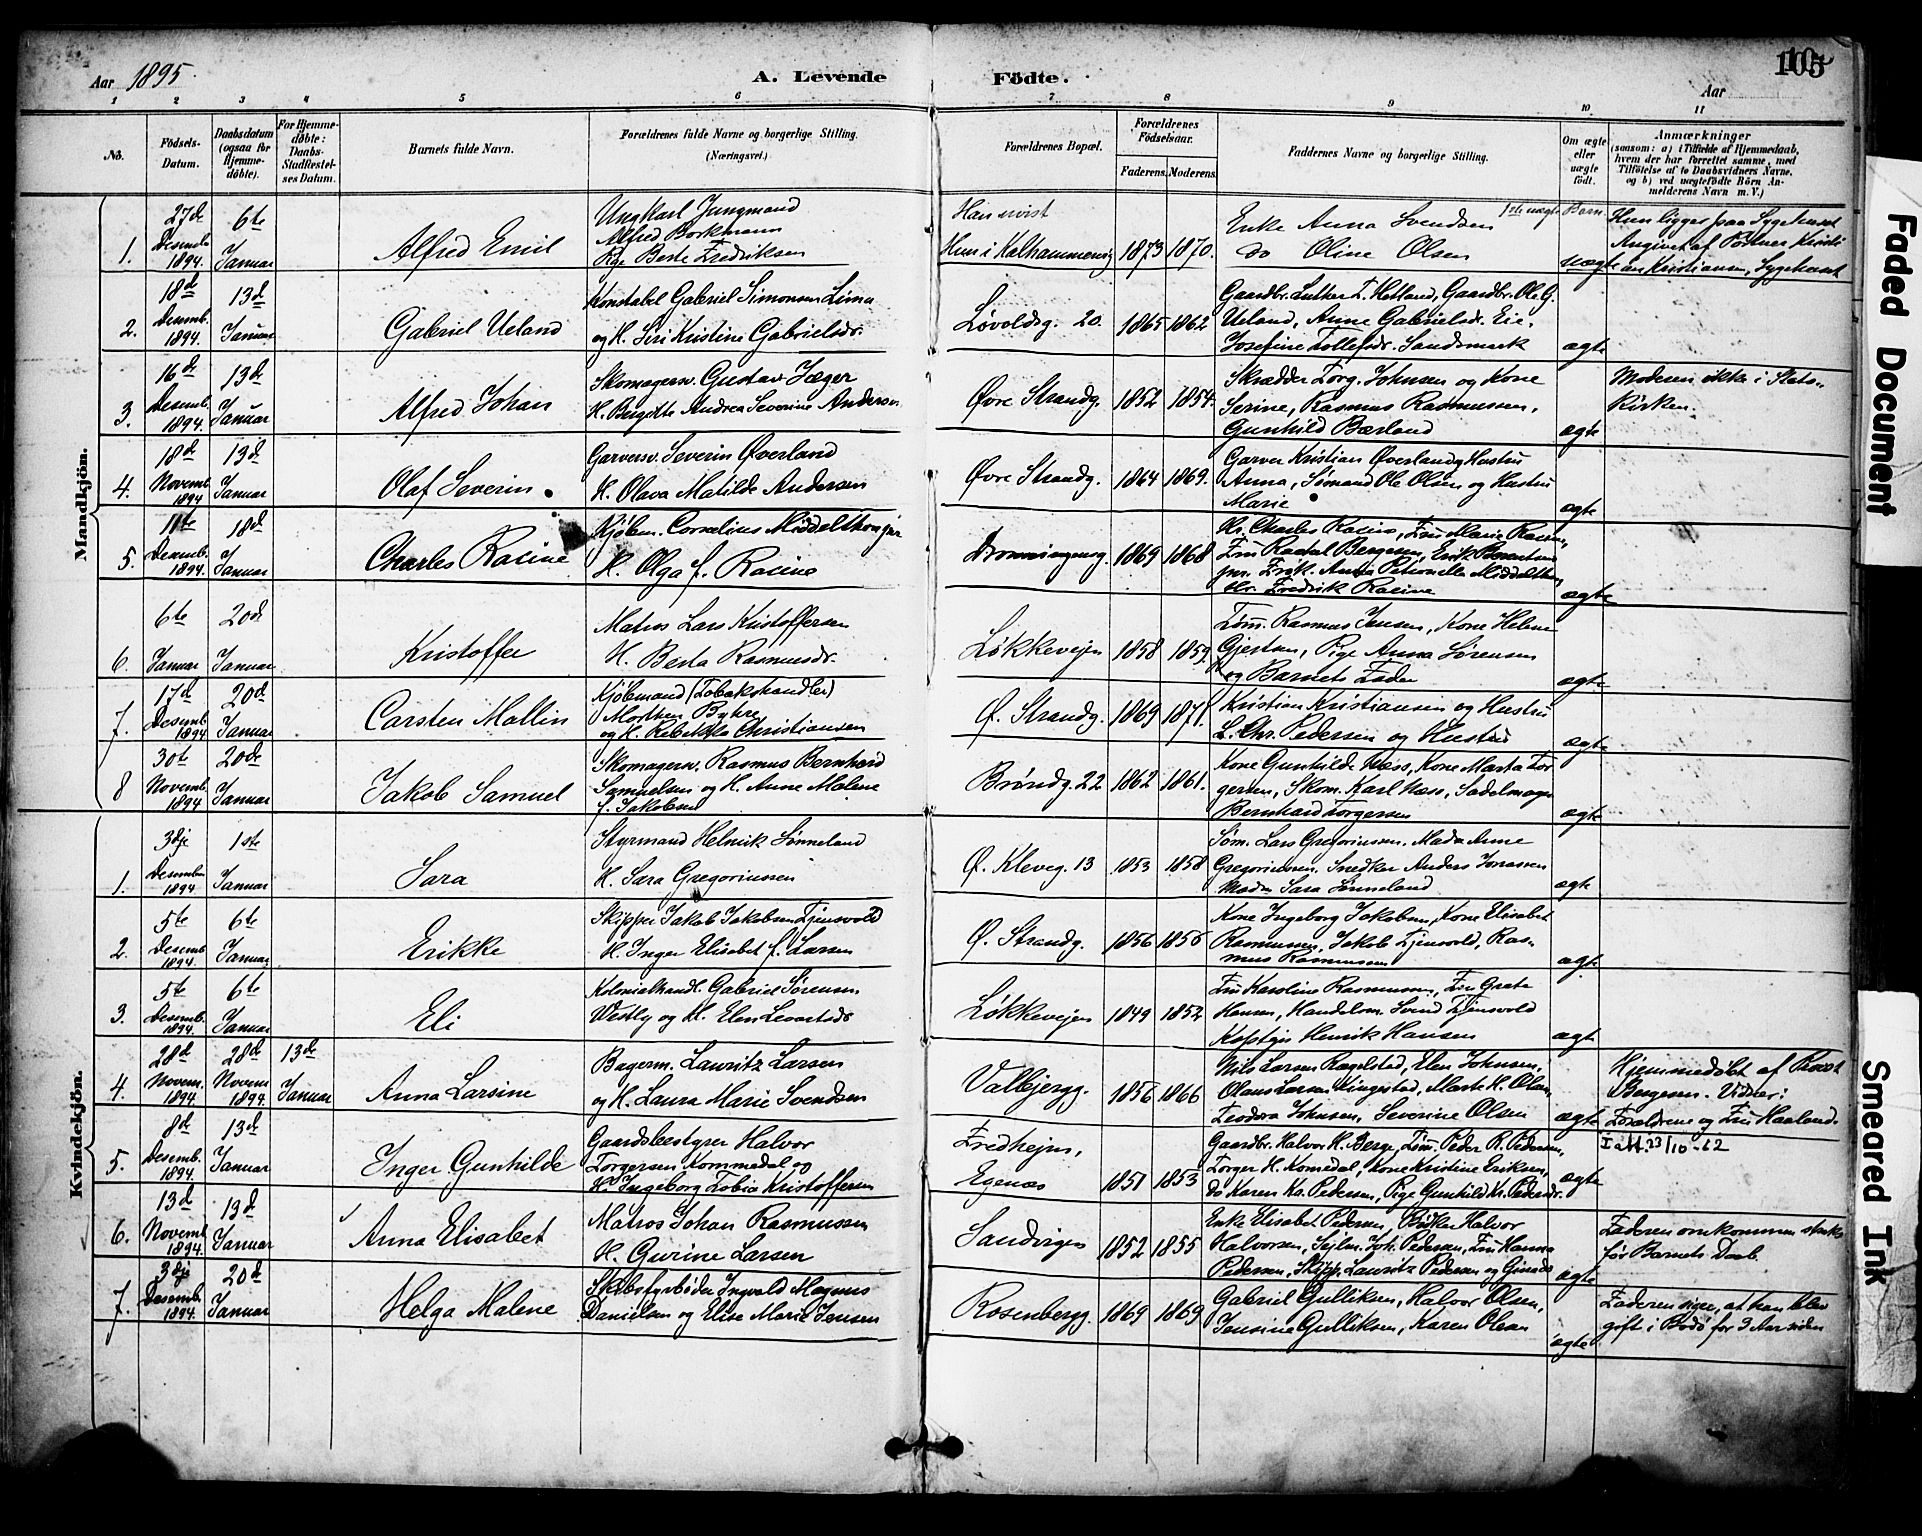 Aar 1895
A. Levende Födte.
105
Aar
1 2 3 4 5 6 7 8 9 10 11
No.
Födsels-Datum.
Daabsdatum (ogsaa for Hjemme-döbte).
For Hjemme-döbte: Daabs-Stadfæstelses Datum.
Barnets fulde Navn.
Forældrenes fulde Navne og borgerlige Stilling. (Næringsvei.)
Forældrenes Bopæl.
Forældrenes Födselsaar.
Faderens. Moderens.
Faddernes Navne og borgerlige Stilling.
Om ægte eller uægte födt.
Anmærkninger
(saasom: a) i Tilfælde af Hjemmedaab, hvem der har forrettet samme, med Tilföielse af to Daabsvidners Navne, og b) ved uægtefödte Börn Anmelderens Navn m. V.)
Mandkjön.
1. 27de Desemb. 1894. 6te Januar
Alfred Emil
Ungkarl Jungmand
Alfred Borkmann
Pige Berte Fredriksen
Han uvist
Hun i Kalhammervig 1873 1870.
Enke Anna Svendsen
do Oline Olsen
1ste uægte Barn
uægte
Hun ligger paa Sygehuset
Angivet af Portner Kristi
an Kristiansen, Sygehuset
2. 18d Desemb. 1894. 13d Januar
Gabriel Ueland
Konstabel Gabriel Simonsen Lima
og H. Siri Kristine Gabrielsdr.
Løvoldsg. 20. 1865 1862
Gaardbr. Luther T. Hetland, Gaardbr. Ole G.
Ueland, Anne Gabrielsd. Eie,
Josefine Tollefsdr. Sandsmark
ægte
3. 16de Desemb. 1894. 13d Januar
Alfred Johan
Skomagersv. Gustav Jæger
H. Birgitte Andrea Severine Andersen
Øvre Strandg. 1852 1854.
Skrædder Torg. Johnsen og Kone
Serine, Rasmus Rasmussen,
Gunhild Bærland
ægte
Moderen ikke i Stats-
kirken.
4. 18d Novemb. 1894 13d Januar
Olaf Severin
Garversv. Severin Øverland
H. Olava Matilde Andersen
Øvre Strandg. 1864 1869.
Garver Kristian Øverland og Hustru
Anna, Sømand Ole Olsen og Hustru
Marie
ægte
5. 11te Desemb. 1894. 18d Januar
Charles Racine
Kjøbm. Cornelius Middelthon jnr
H. Olga f. Racine
Dronningensg 1869 1868
Hr. Charles Racine, Fru Marie Racine,
Fru Rachel Bergesen, Erik Berentsen
jnr. Frøk. Anna Petronelle Middelthon
Hr. Fredrik Racine
ægte
6. 6te Januar 20de Januar
Kristoffer
Matros Lars Kristoffersen
H. Berta Rasmusdr.
Løkkeveien 1858 1859
Tøm. Rasmus Jensen, Kone Helene
Gjertsen, Pige Anna Sørensen
og Barnets Fader
ægte
7. 17d Desemb. 1894 20d Januar
Carsten Mallin
Kjøbmand (Tobakshandler)
Morthen Bykre
og H. Rebekka Christiansen
Ø. Strandg. 1869 1871.
Kristian Kristiansen og Hustru
L. Chr. Pedersen og Hustru
ægte
8 30te Novemb. 1894 20de Januar
Jakob Samuel
Skomagersv. Rasmus Bernhard
Samuelsen og H. Anne Malene
f. Jakobsen
Brøndg. 22 1862 1861.
Kone Gunhilde Næss, Kone Marta Tor
gersen, Skom. Karl Næss, Sadelmager
Bernhard Torgersen
ægte
Kvindekjön.
1. 3dje Desember 1894 1ste Januar
Sara
Styrmand Helmik Sønneland
H. Sara Gregoriussen
Ø. Kleveg. 13 1853 1858
Søm. Lars Gregoriussen. Mada Anne
Gregoriussen, Snedker Anders Jonassen
Mada Sara Sønneland
ægte
2. 5te Desemb. 1894. 6te Januar
Erikke
Skipper Jakob Jakobsen Tjensvold
H. Inger Elisabet f. Larsen
Ø. Strandg. 1856 1856
Kone Ingeborg Jakobsen, Kone Elisabet
Rasmussen, Jakob Tjensvold, Ras-
mus Rasmussen
ægt.
3. 5te Desemb. 1894. 6te Januar
Eli
Kolonialhandl. Gabriel Sørensen
Vestly og H. Elen Levartsdr
Løkkeveien 1849 1852
Fru Karoline Rasmussen, Fru Grete
Hansen, Handelsm. Svend Tjensvold
Kaptejn Henrik Hansen
ægt
4. 28d Novem. 1894. 28d Novem 1894. 13de Januar
Anna Larsine
Bagerm. Lauritz Larsen
og H. Laura Marie Svendsen
Valbjergg. 1856 1866
Nils Larsen Rægelstad, Elen Johnsen,
Olaus Larsen Ringestad, Marte K. Olsen,
Teodora Johnsen, Severine Olsen
ægte
Hjemmedøbt af Provst
Bergesen. Vidner:
Forældrene og Fru Haaland.
5. 8d Desemb. 1894. 13d Januar
Inger Gunhilde
Gaardsbestyrer Halvor
Torgersen Kommedal og
H. Ingeborg Tobia Kristoffersen
Fredhejm,
Egenæs 1851 1853
Gaardbr. Halvor H. Berge, Tøm. Peder R. Pedersen,
Torger H. Komedal, Kone Kristine Eriksen,
do Karen Ks. Pedersen, Pige Gunhild Kr. Pedersdr.
ægte
I att. 23/10-62
6. 13d Novemb 1894. 13d Januar
Anna Elisabet
Matros Johan Rasmussen
H. Gurine Larsen
Sandvigen 1852 1855
Enke Elisabet Pedersen, Bødker Halvor
Halvorsen, Sejlm. Joh. Pedersen, Fru Hanna
Pedersen, Skipp. Lauritz Pedersen og
ægte
Faderen omkommen straks
før Barnets Daab.
7. 3dje Desemb. 1894. 20d Januar
Helga Malene
Skibsfyrbøder Ingvald Magnus
Danielsen og Elise Marie Jensen
Rosenbergg. 1869 1869
Gabriel Gulliksen, Halvor Olsen,
Jensine Gulliksen, Karen Olsen
ægte
Faderen siger, at han blev
gift i Bodø for 3 Aar siden
Faded Document
Smeared Ink